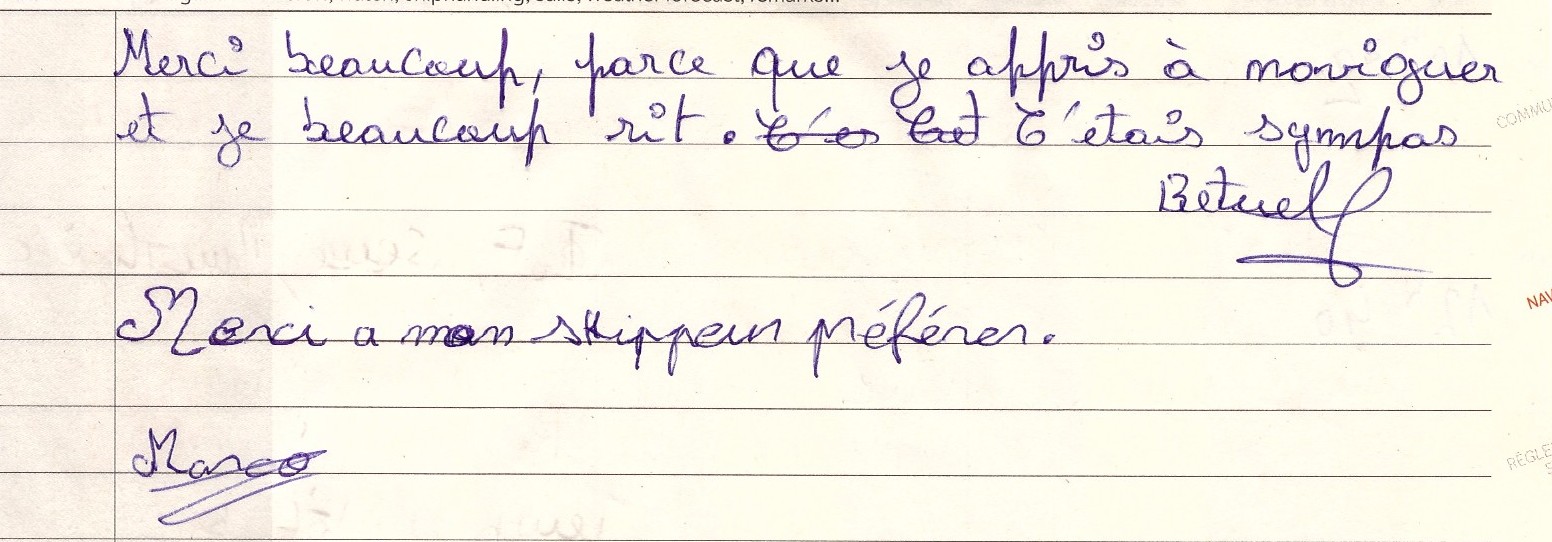 Merci beaucoup, parce que je appris à naviguer
et je beaucoup rit. T'etais sympas
Betuel
Merci a mon skippeur préférer.
Marco
COMMU
NAV
RÈGLE